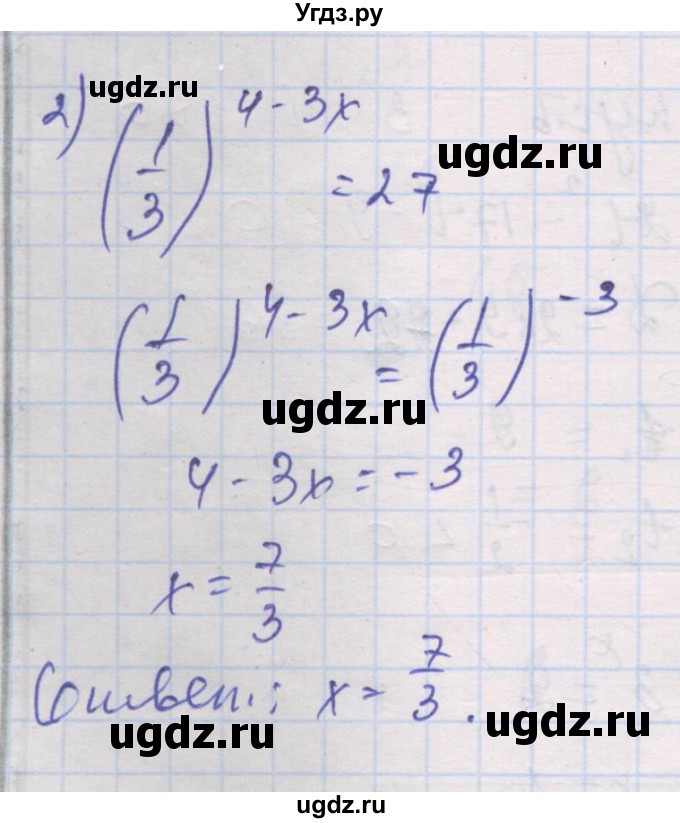 Угдз.ру
ugdz.ru
2) (1/3)^(4-3x) = 27
ugdz.ru
(1/3)^(4-3x) = (1/3)^(-3)
ugdz.ru
4 - 3x = -3
x = 7/3
Ответ: x = 7/3.
ugdz.ru
ugdz.ru
ugdz.ru